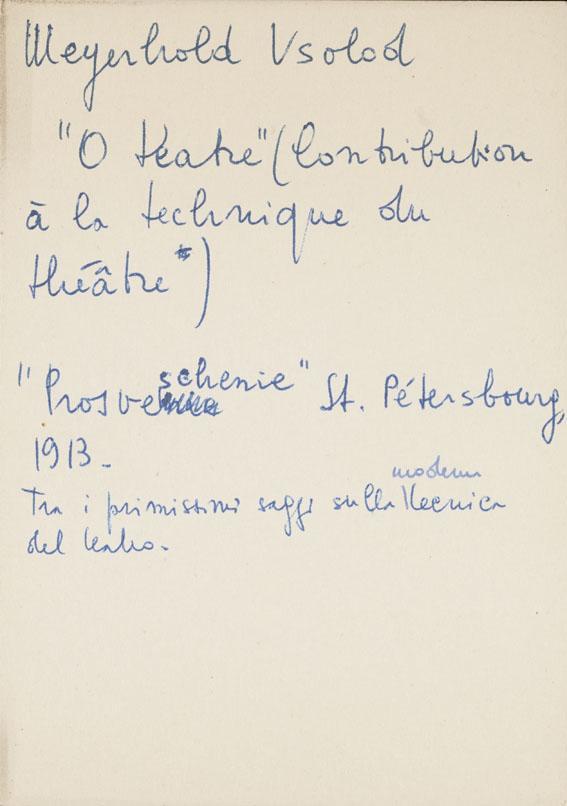 Meyerhold Vsolod
"O teatre" (Contribution
à la technique du
théâtre*)
"Prosveschenie" St. Pétersbourg,
1913.
Tra i primissimi saggi sulla moderna tecnica
del teatro.